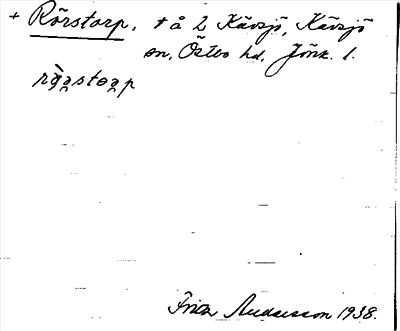 + Rörstorp, t å 2 Kävsjö, Kävsjö
sn, Östbo hd, Jönk. l.
Andersson 1938.